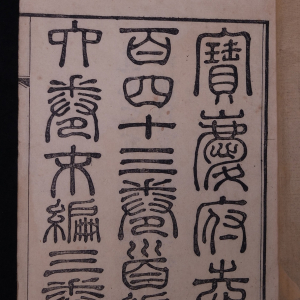 寶慶府志
百四十三卷首
六卷末編三卷